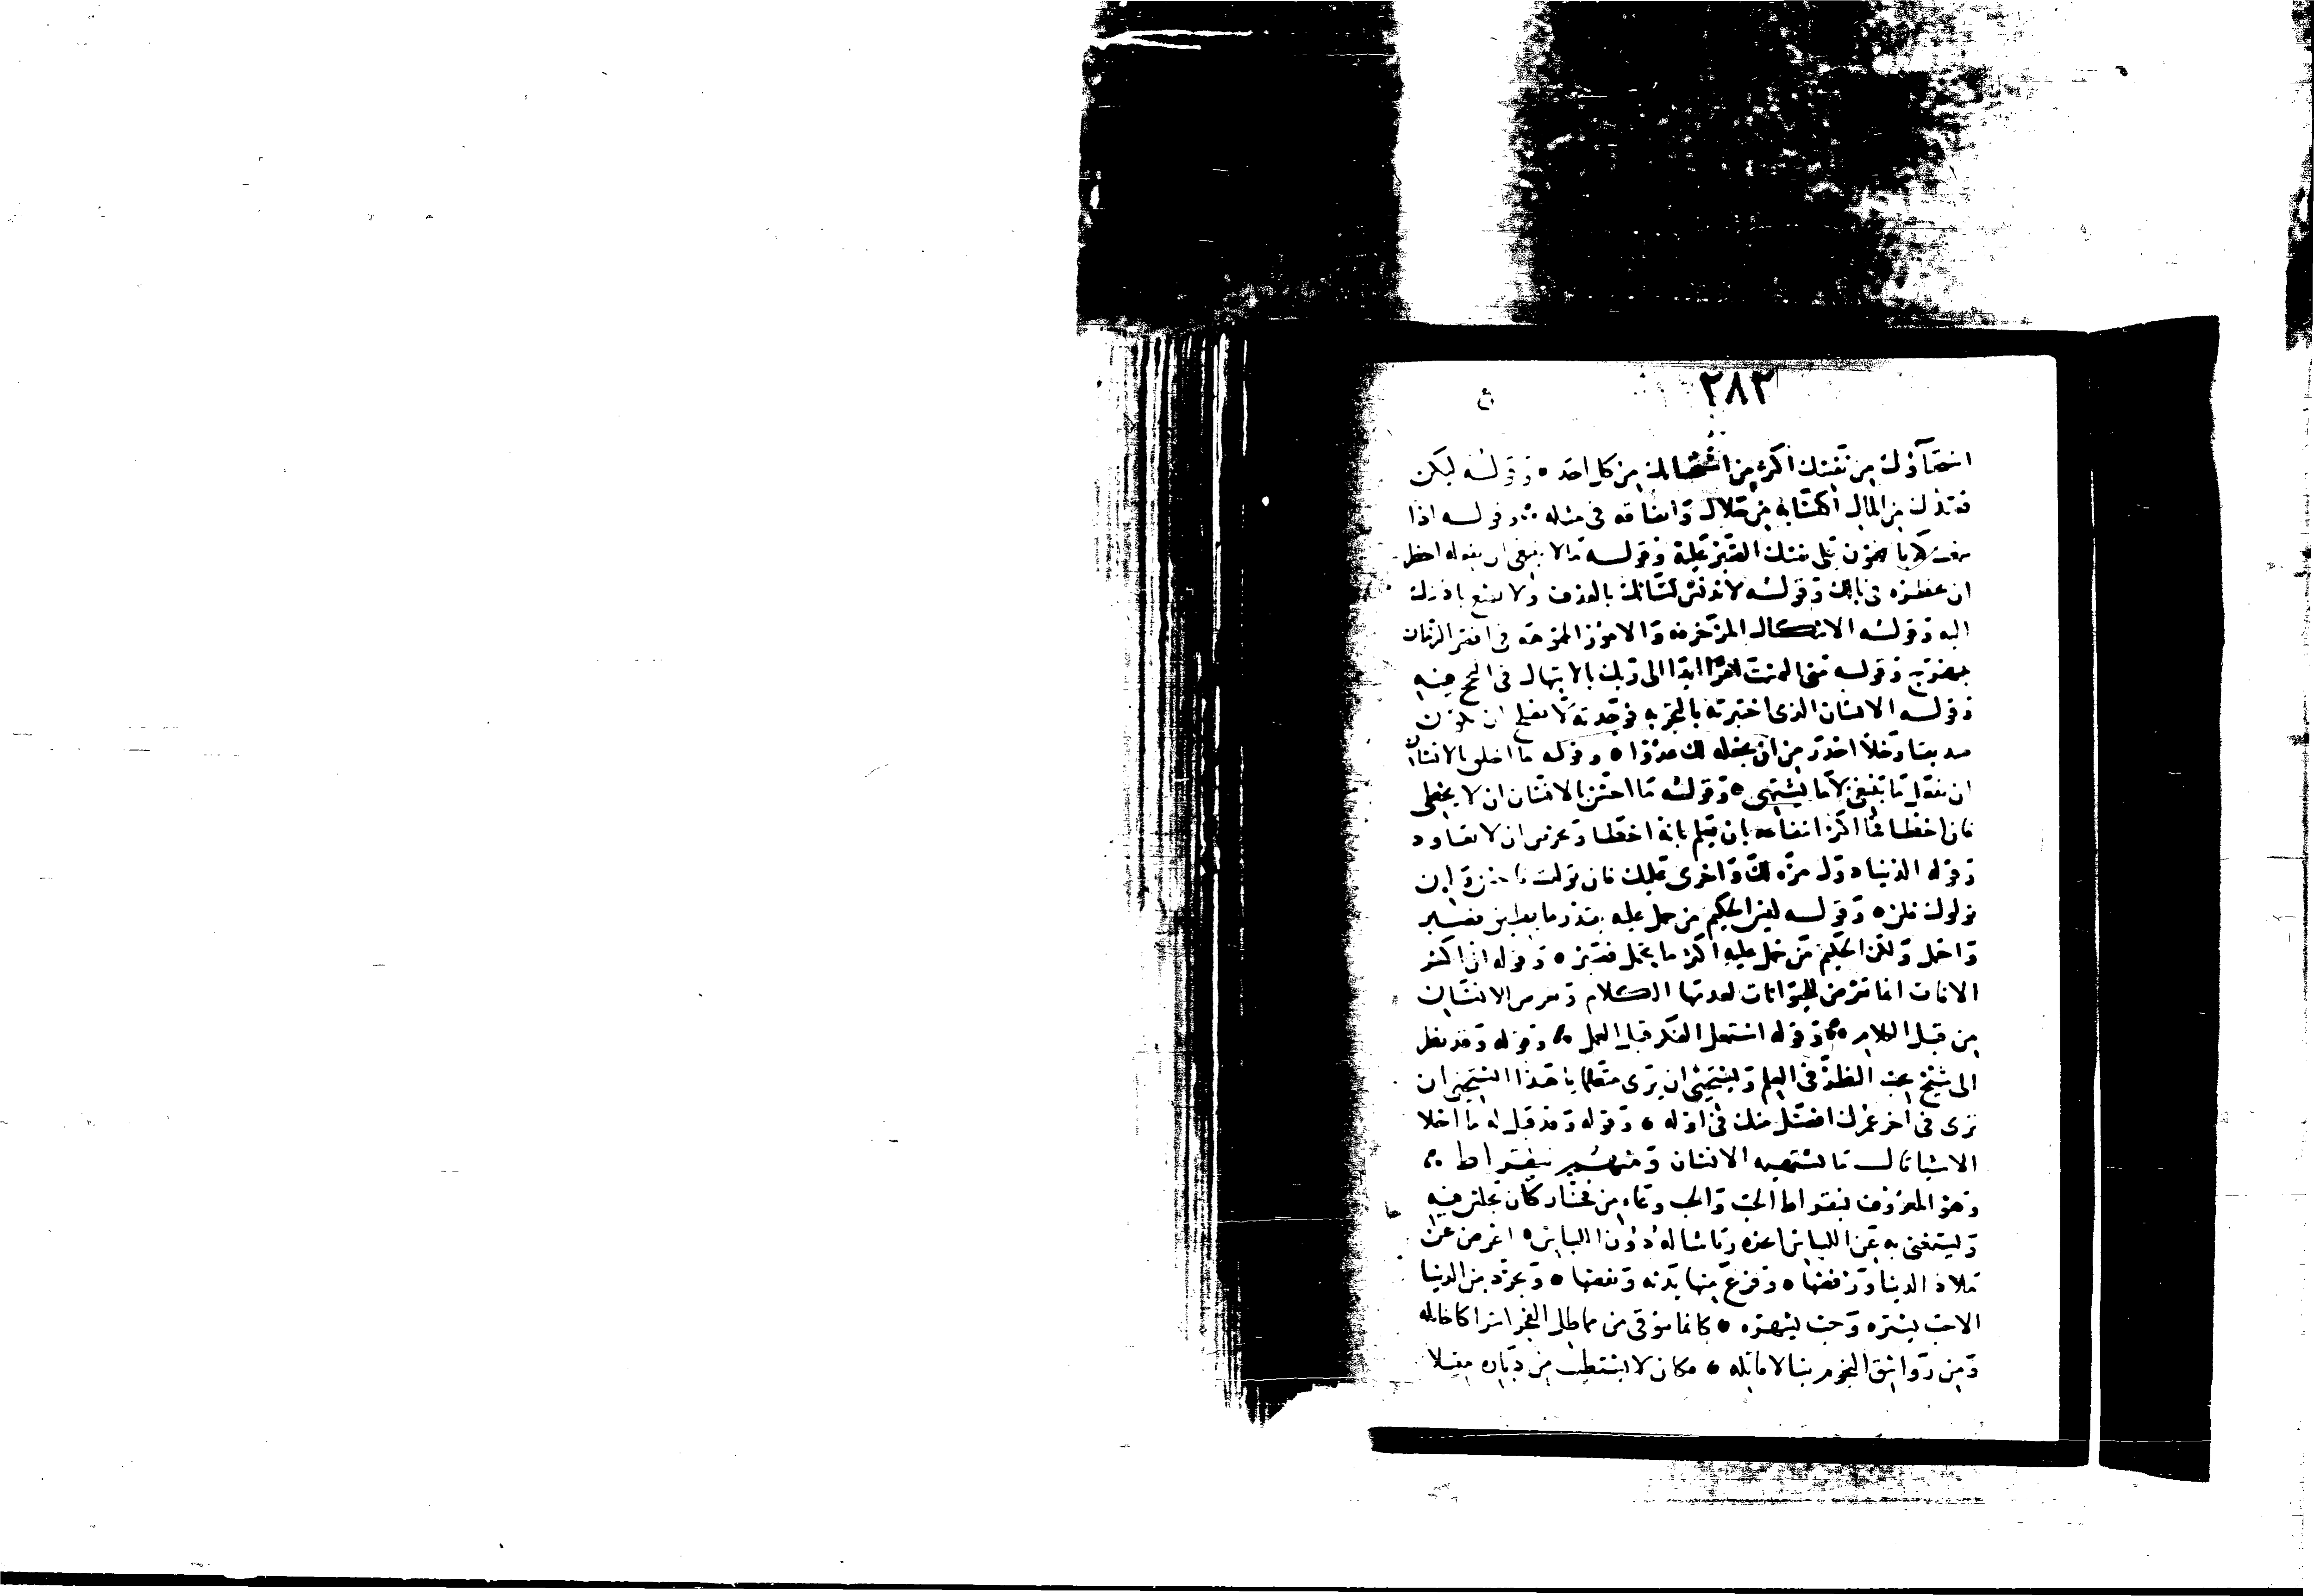 ٢٨٣
استحياؤك من نفسك اكثر من استحيائك من كل احد ٥ وقوله ليكن
قصدك من المال اكتسابه من حلال وانفاقه في مثله وقوله اذا
سمعت كلاما فهون على نفسك الصبر عليه وقوله ما لا ينبغي ان يفعله احظر
ان تخطره في بالك وقوله لا تدنس لسانك بالقذف ولا تصغ باذنك
اليه وقوله الاشكال المزخرفة والامور المموهة في اقصر الزمان
تتبهرج وقوله متى التمست امرا ابدا الى ربك بالابتهال في النجح فيه
وقوله الانسان الذي اختبرته بالتجربة فوجدته لا يصلح ان يكون
صديقا وخلا احذر من ان تجعله لك عدوا ٥ وقوله ما اخلق بالانسان
ان يفعل ما ينبغي لا ما يشتهي ٥ وقوله ما احسن بالانسان ان لا يخطي
فان اخطا فما اكثر انتفاعه بان يعلم بانه اخطا ويحرص ان لا يعاود
وقوله الدنيا دول مرة لك واخرى عليك فان توليت فاحسن وان
تولوك فلن ٥ وقوله ليس الحكيم من حمل عليه بقدر ما يطيق فصبر
واحتمل ولكن الحكيم من حمل عليه اكثر مما يحتمل فصبر ٥ وقوله ان اكثر
الافات انما تعرض للحيوانات لعدمها الكلام وتعرض للانسان
من قبل الكلام ٥ وقوله استعمل الفكر قبل العمل ٥ وقوله وقد نظر
الى شيخ يحب النظر في العلم ويستحيي ان يرى متعلما يا هذا اتستحيي ان
ترى في اخر عمرك افضل منك في اوله ٥ وقوله وقد قيل له ما احلا
الاشيا قال ما يشتهيه الانسان ومنهم سقراط
وهو المعروف بسقراط الحب والحب وعاء من فخار كان يجلس فيه
ويستغني به عن اللباس اعرض عن
ملاذ الدنيا ورفضها ٥ وفرغ منها بدنه ونفضها ٥ وتجرد من الدنيا
الا حب يستره وحب يشهره ٥ كانما توقى من مماطل الفجر اشراكا خاتله
ومن رواشق النجوم نبالا قاتله ٥ فكان لا يستطيب من دياره مقيلا